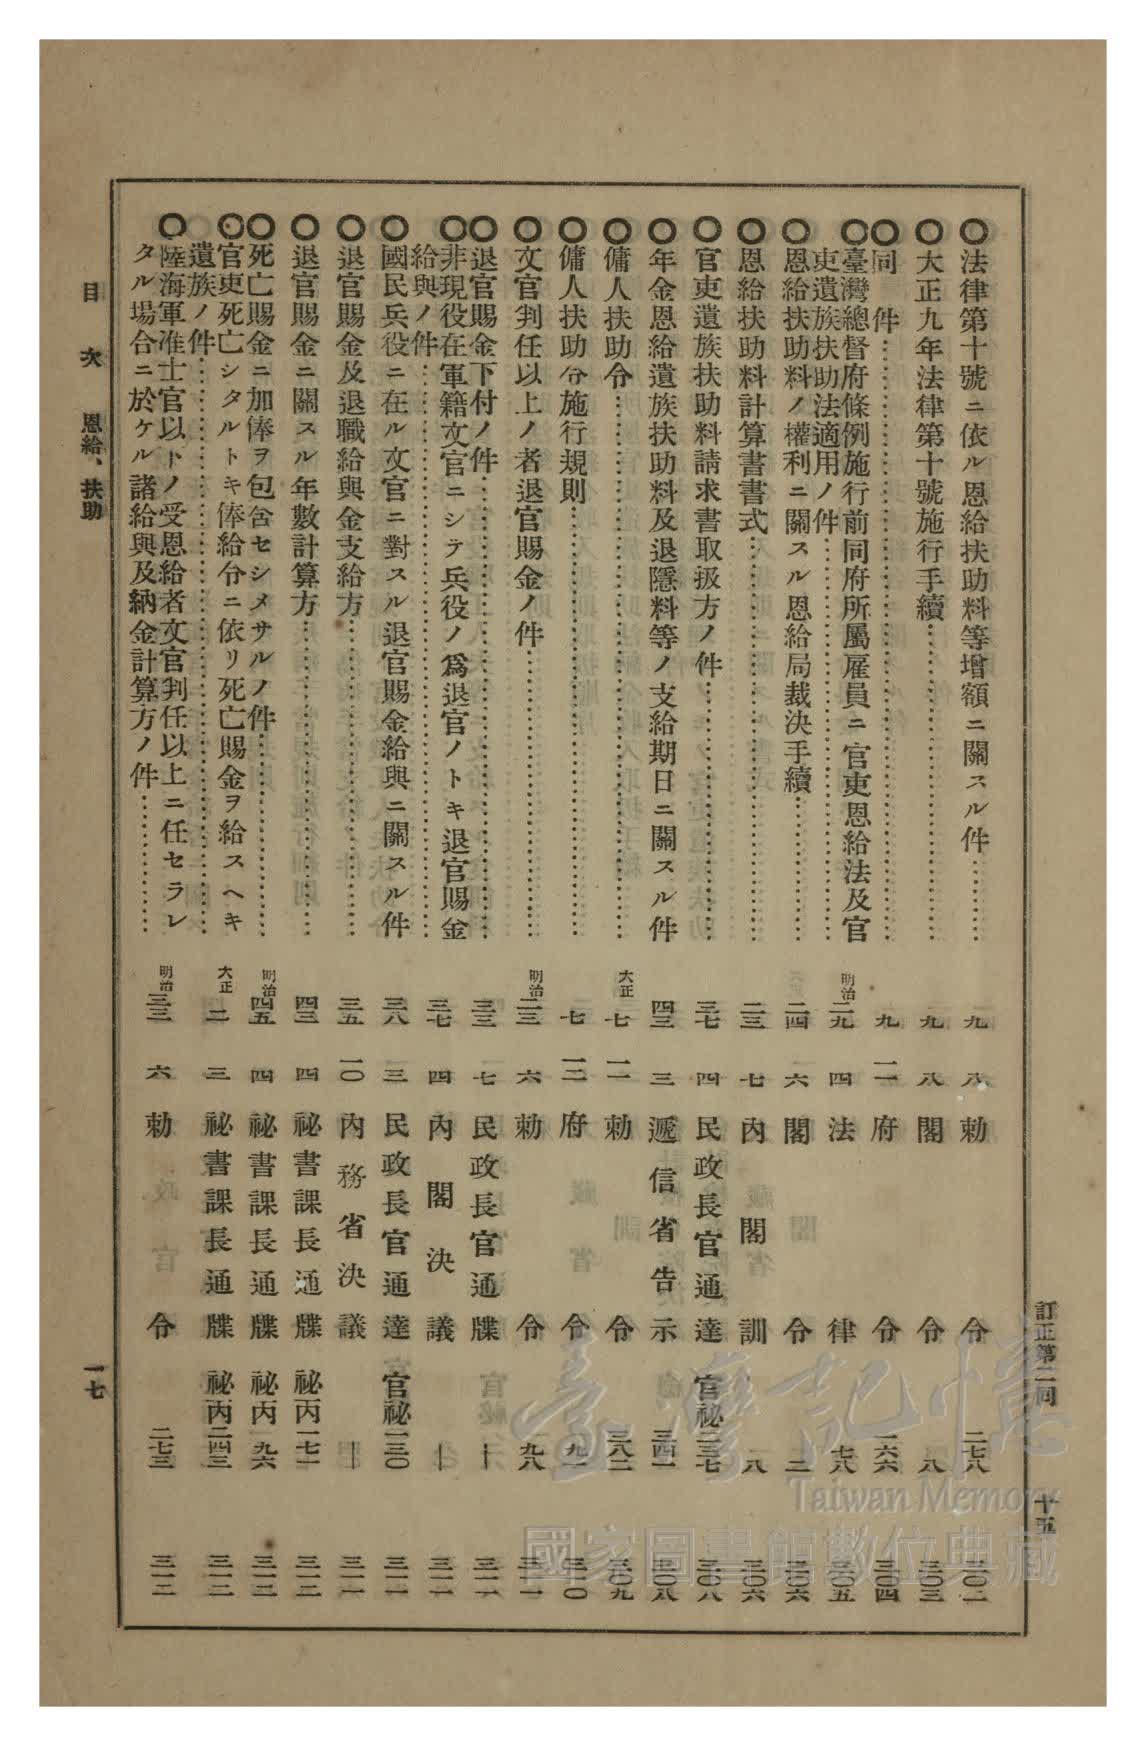 訂正第二回 十五
〇法律第十號ニ依ル恩給扶助料等增額ニ關スル件………… 一九 八 勅令 二七八 三〇二
〇大正九年法律第十號施行手續………… 九 八 閣令 八 三〇三
〇同 件………… 九 一一 府令 一六六 三〇四
〇臺灣總督府條例施行前同府所屬雇員ニ官吏恩給法及官
吏遺族扶助法適用ノ件………… 明治二九 四 法律 七八 三〇五
〇恩給扶助料ノ權利ニ關スル恩給局裁決手續………… 二四 六 閣令 三 三〇六
〇恩給扶助料計算書書式………… 二三 七 內閣訓 一八 三〇六
〇官吏遺族扶助料請求書取扱方ノ件………… 三七 四 民政長官通達 官祕二三七 三〇八
〇年金恩給遺族扶助料及退隱料等ノ支給期日ニ關スル件 四三 三 遞信省告示 三四一 三〇八
〇傭人扶助令………… 大正七 一一 勅令 三八二 三〇九
〇傭人扶助令施行規則………… 七 一二 府令 九一 三一〇
〇文官判任以上ノ者退官賜金ノ件………… 明治二三 六 勅令 九八 三一一
〇退官賜金下付ノ件………… 三三 七 民政長官通牒 — 三一一
〇非現役在軍籍文官ニシテ兵役ノ爲退官ノトキ退官賜金
給與ノ件………… 三七 四 內閣決議 — 三一一
〇國民兵役ニ在ル文官ニ對スル退官賜金給與ニ關スル件 三八 三 民政長官通達 官祕一三〇 三一一
〇退官賜金及退職給與金支給方………… 三五 一〇 內務省決議 — 三一一
〇退官賜金ニ關スル年數計算方………… 四三 四 祕書課長通牒 祕丙一七一 三一二
〇死亡賜金ニ加俸ヲ包含セシメサルノ件………… 明治四五 四 祕書課長通牒 祕丙一九六 三一二
〇官吏死亡シタルトキ俸給令ニ依リ死亡賜金ヲ給スヘキ
遺族ノ件………… 大正二 三 祕書課長通牒 祕丙二四三 三一二
〇陸海軍准士官以下ノ受恩給者文官判任以上ニ任セラレ
タル場合ニ於ケル諸給與及納金計算方ノ件………… 明治三三 六 勅令 二七三 三一二
目次 恩給、扶助 一七
臺灣記憶
Taiwan Memory
國家圖書館數位典藏